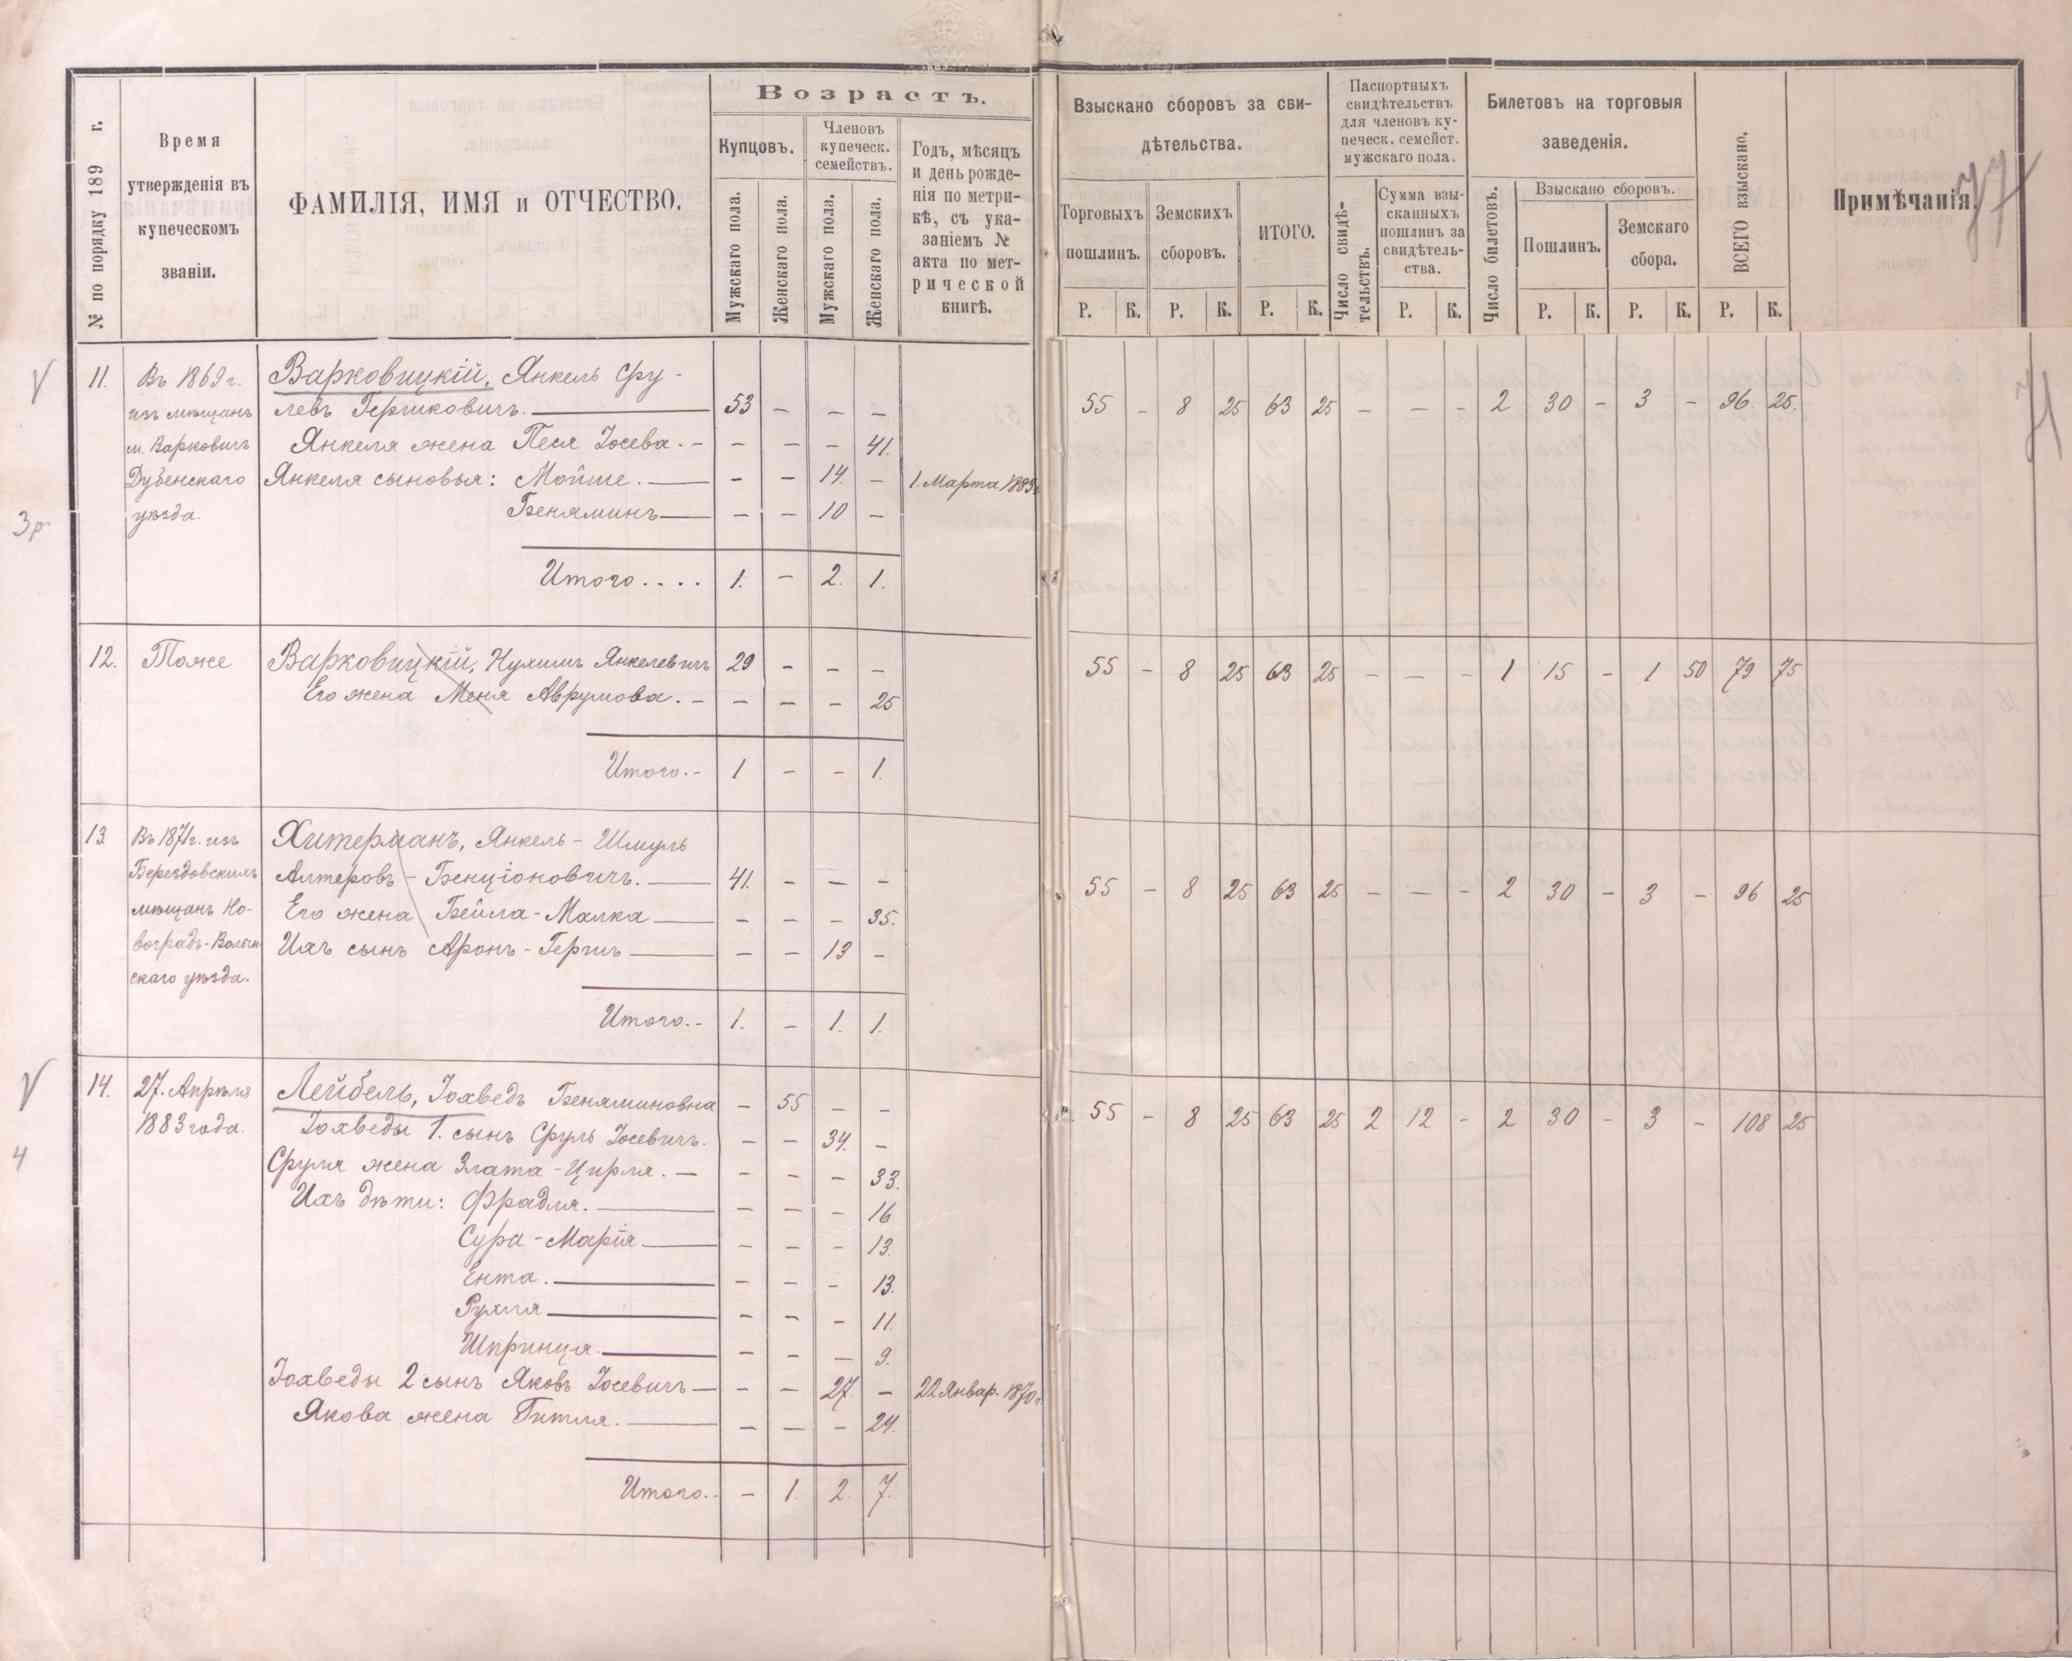 77
№ по порядку 189 г.
Время
утвержденія въ
купеческомъ
званіи.
ФАМИЛІЯ, ИМЯ и ОТЧЕСТВО.
Возрастъ.
Купцовъ.
Мужскаго пола.
Женскаго пола.
Членовъ
купеческ.
семействъ.
Мужскаго пола.
Женскаго пола.
Годъ, мѣсяцъ
и день рожде-
нія по метри-
кѣ, съ ука-
заніемъ №
акта по мет-
рической
книгѣ.
Взыскано сборовъ за сви-
дѣтельства.
Торговыхъ
пошлинъ.
Земскихъ
сборовъ.
ИТОГО.
Паспортныхъ
свидѣтельствъ
для членовъ ку-
печеск. семейст.
мужскаго пола.
Число свидѣ-
тельствъ.
Сумма взы-
сканныхъ
пошлинъ за
свидѣтель-
ства.
Билетовъ на торговыя
заведенія.
Число билетовъ.
Взыскано сборовъ.
Пошлинъ.
Земскаго
сбора.
ВСЕГО взыскано.
Примѣчанія.
Р. К. Р. К. Р. К. Р. К. Р. К. Р. К. Р. К.
V 11. Въ 1869 г. Варковицкій, Янкель Сру-
изъ мѣщанъ левъ Гершковичъ. 53 - - - 55 - 8 25 63 25 - - - 2 30 - 3 - 96 25.
м. Варковичъ Янкеля жена Песя Іосева. - - - - 41.
Дубенскаго Янкеля сыновья: Мойше. - - 14. - 1. Марта
3р уѣзда. Беняминъ - - 10 -
Итого.... 1. - 2. 1.
12. Тоже Варковицкій, Нухимъ Янкелевичъ 29 - - - 55 - 8 25 63 25 - - - 1 15 - 1 50 79 75
Его жена Меня Аврумова. - - - - 25
Итого.- 1 - - 1.
13 Въ 1871г. изъ Хитерманъ, Янкель-Шмуль
Берездовскихъ Алтеровъ-Бенціоновичъ. 41. - - - 55 - 8 25 63 25 - - - 2 30 - 3 - 96 25
мѣщанъ Но- Его жена Бейла-Малка - - - 35.
воградъ-Волын- Ихъ сынъ Аронъ-Гершъ - - 13 -
скаго уѣзда.
Итого.- 1. - 1. 1.
V 14. 27. Апрѣля Лейбель, Іохведъ Беняминовна - 55 - - 55 - 8 25 63 25 2 12 - 2 30 - 3 - 108 25
1883 года. Іохведы 1. сынъ Сруль Іосевичъ. - - 34. -
4 Сруля жена Злата-Цирля. - - - - 33.
Ихъ дѣти: Фрадля. - - - 16
Сура-Марія - - - 13.
Ента. - - - 13.
Рухля - - - 11.
Шпринца. - - - 9.
Іохведы 2 сынъ Яковъ Іосевичъ - - - 27 - 22 Январ. 1870г.
Якова жена Гитля. - - - 24.
Итого.. - 1. 2. 7.